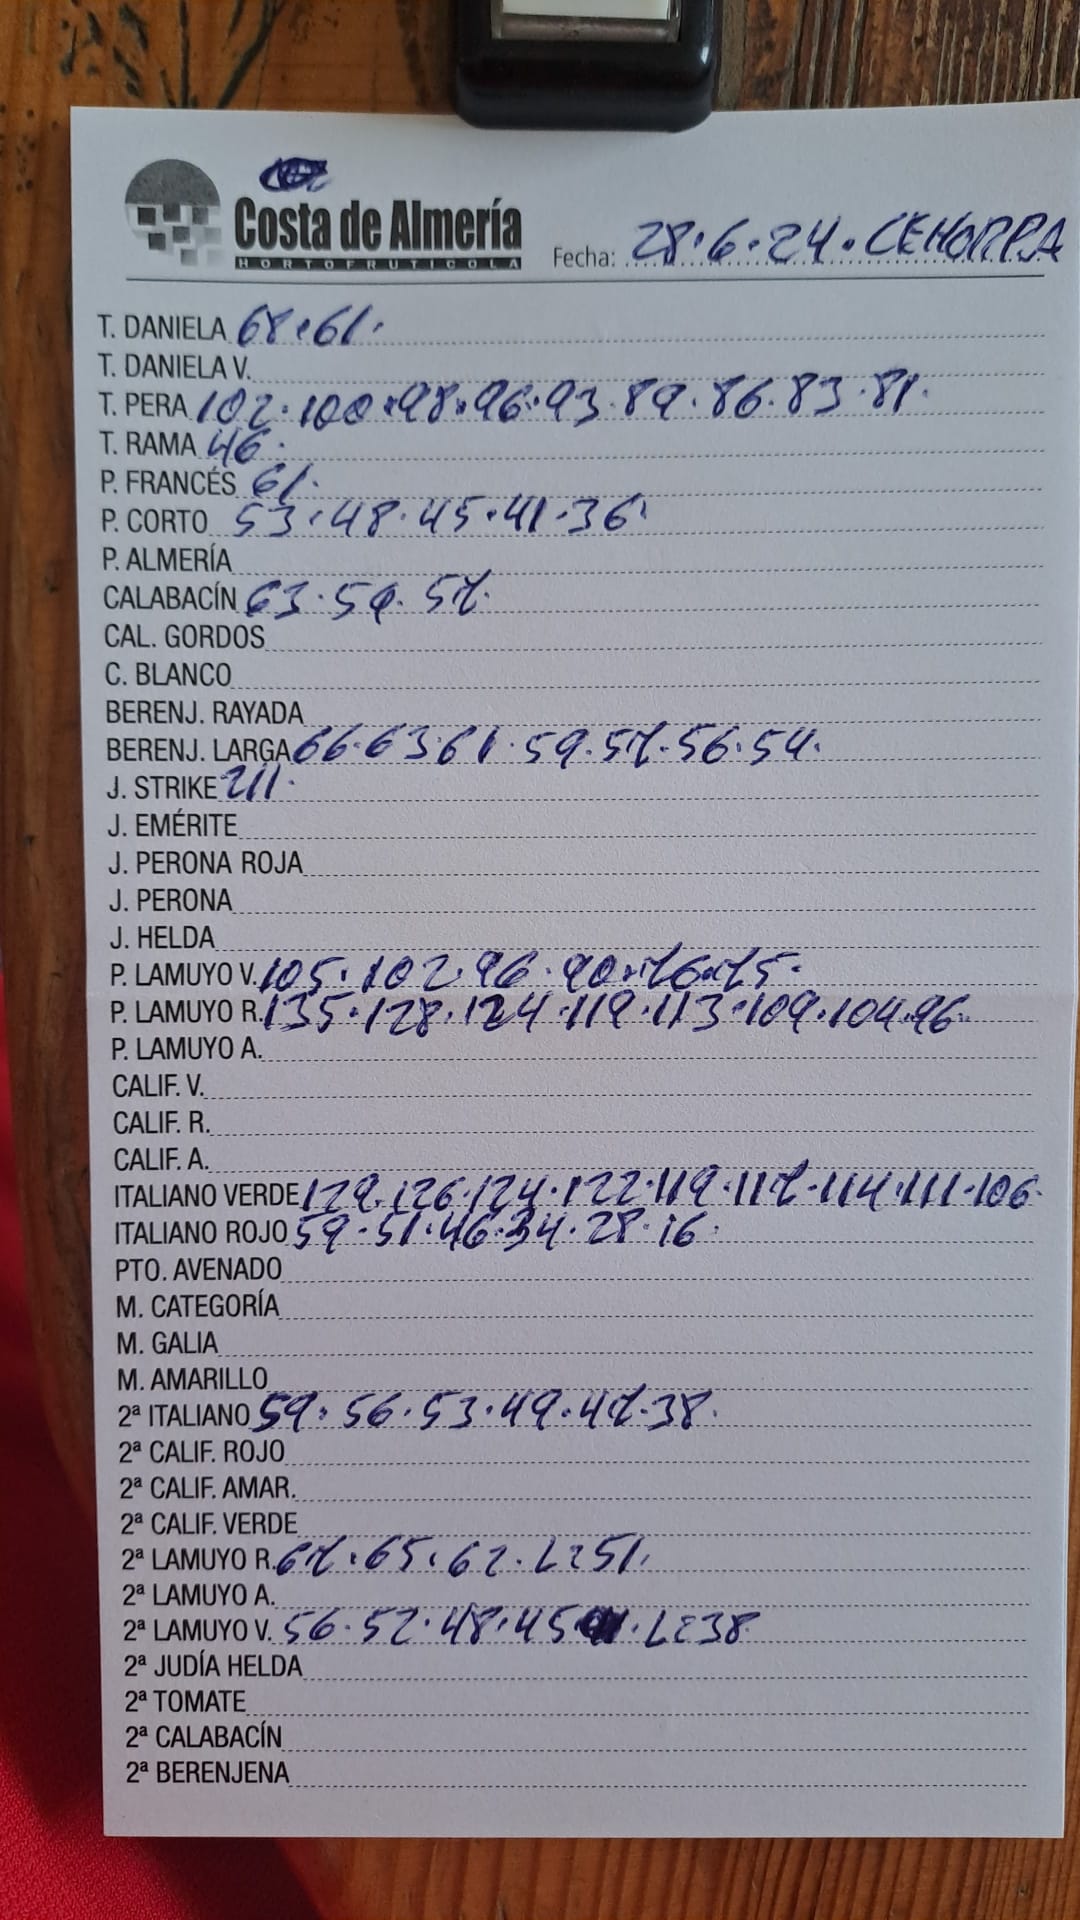 Costa de Almería
HORTOFRUTICOLA
Fecha: 28.6.24. CEHORPA
T. DANIELA 68.61.
T. DANIELA V.
T. PERA 102.100.98.96.93.89.86.83.81.
T. RAMA 46.
P. FRANCÉS 61.
P. CORTO 53.48.45.41.36
P. ALMERÍA
CALABACÍN 63.59.57.
CAL. GORDOS
C. BLANCO
BERENJ. RAYADA
BERENJ. LARGA 66.63.61.59.57.56.54.
J. STRIKE 211.
J. EMÉRITE
J. PERONA ROJA
J. PERONA
J. HELDA
P. LAMUYO V. 105.102.96.90.76.75.
P. LAMUYO R. 135.128.124.119.113.109.104.96.
P. LAMUYO A.
CALIF. V.
CALIF. R.
CALIF. A.
ITALIANO VERDE 129.126.124.122.119.117.114.111.106.
ITALIANO ROJO 59.51.46.34.28.16.
PTO. AVENADO
M. CATEGORÍA
M. GALIA
M. AMARILLO
2ª ITALIANO 59.56.53.49.47.38.
2ª CALIF. ROJO
2ª CALIF. AMAR.
2ª CALIF. VERDE
2ª LAMUYO R. 67.65.62.L:51.
2ª LAMUYO A.
2ª LAMUYO V. 56.52.48.45.L:38
2ª JUDÍA HELDA
2ª TOMATE
2ª CALABACÍN
2ª BERENJENA